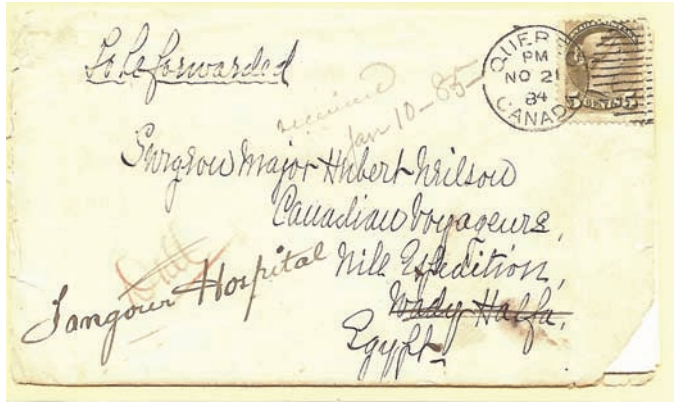 To be forwarded
QUEB
PM
NO 21
84
CANADA
5 CENTS 5
received
Jan 10-85-
Surgeon Major Hubert Neilson
Canadian Voyageurs,
Nile Expedition,
Wady Halfa,
Egypt-
Hospital